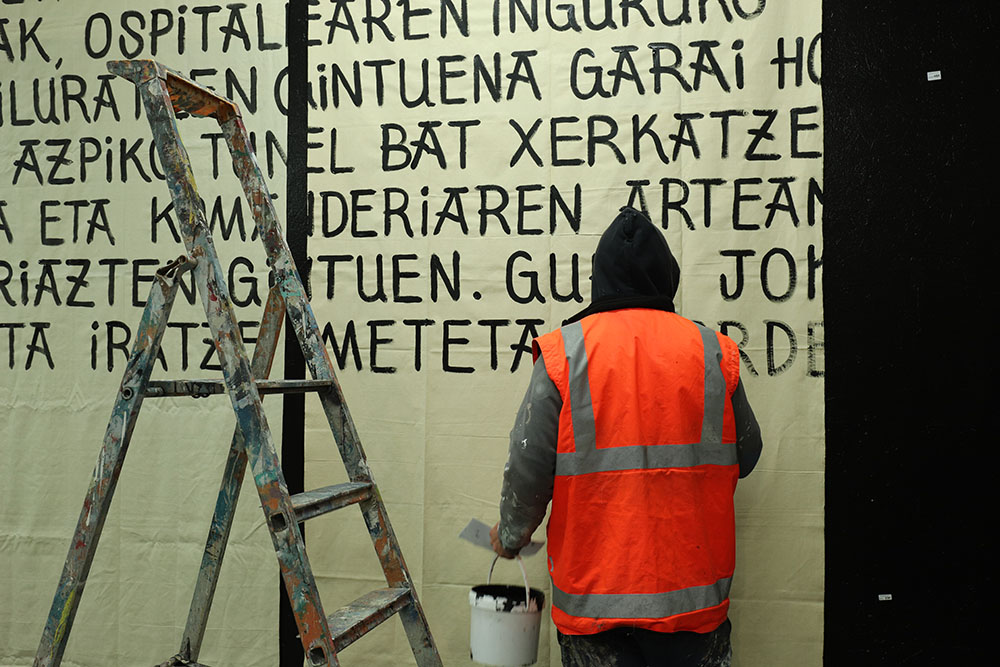 AK, OSPITALEAREN INGURUKO
ILURATZEN GINTUENA GARAI HO
AZPIKO TUNEL BAT XERKATZE
A ETA KOMANDERIAREN ARTEAN
RIAZTEN GINTUEN. GU JOK
TA IRATZE METETA RDE